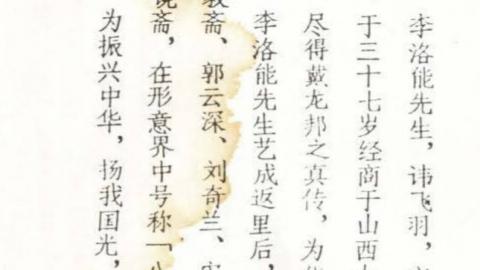 李洛能先生，讳飞羽，
于三十七岁经商于山西
尽得戴龙邦之真传，为
李洛能先生艺成返里后，
斋、郭云深、刘奇兰、宋
斋，在形意界中号称「八
为振兴中华，扬我国光，